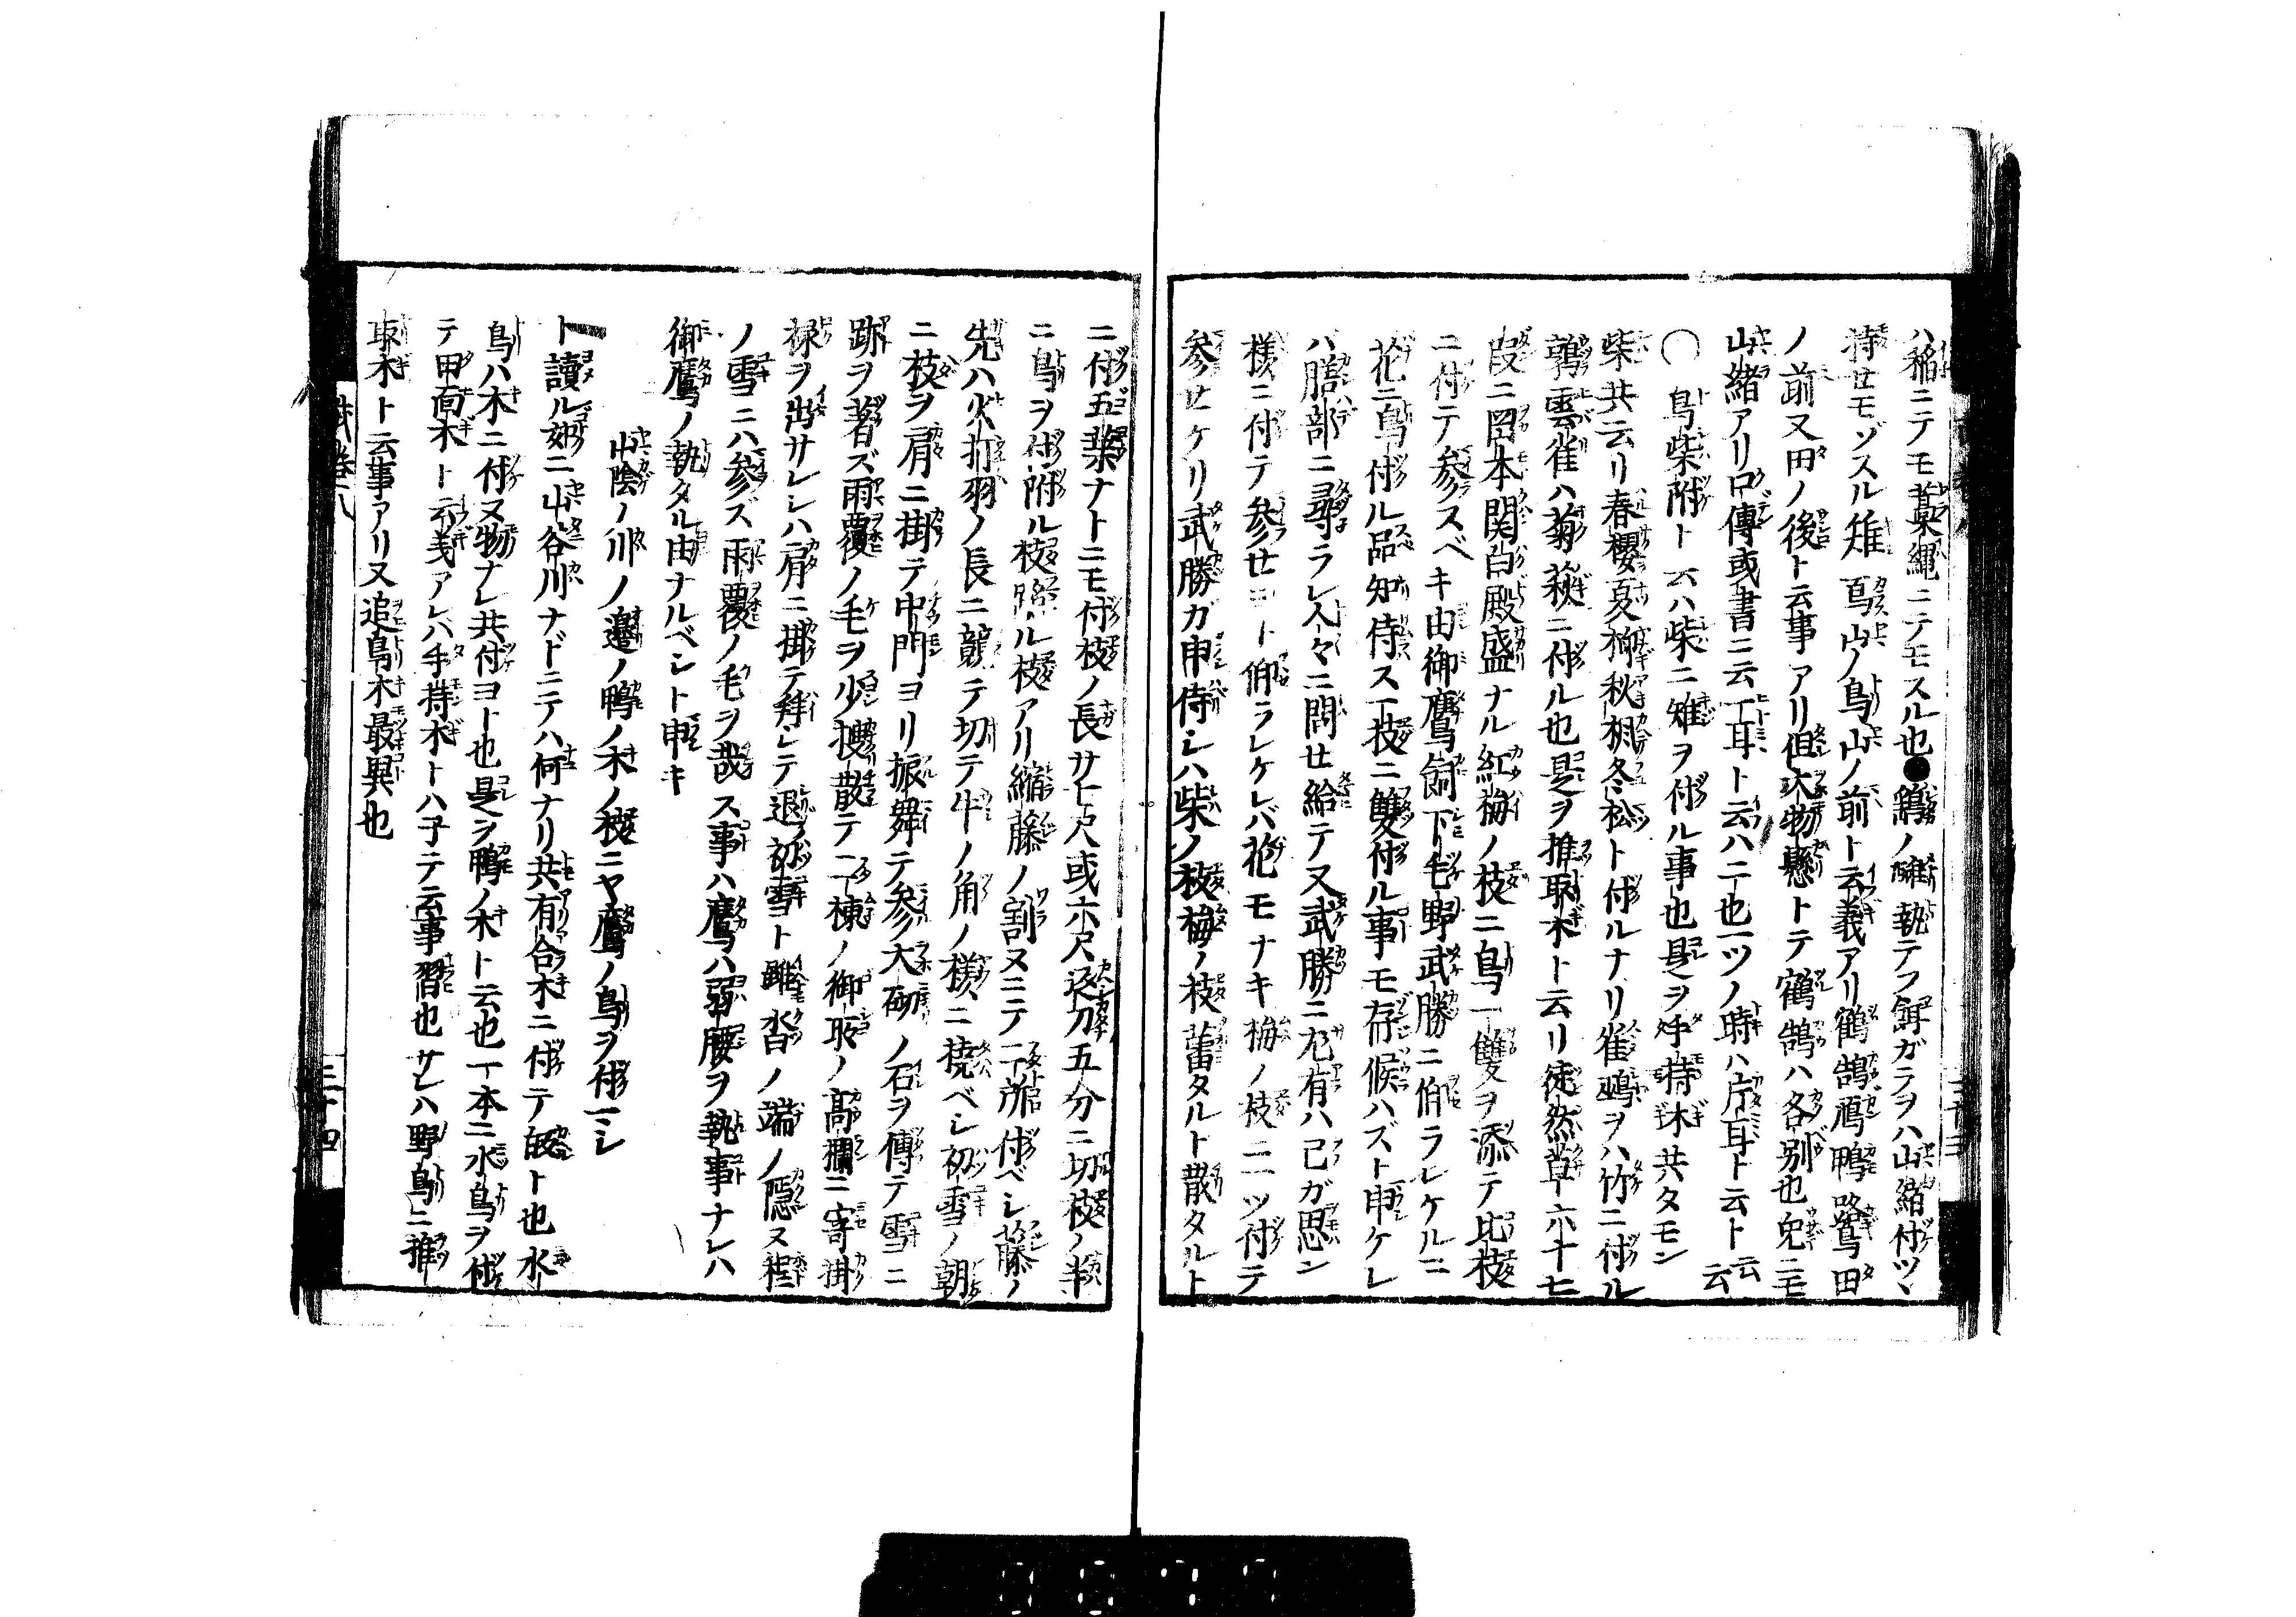 ハ稲ニテモ藁縄ニテモスル也●鶉ノ雛執テフ餌ガラヲハ山緒付ツヽ
持セモゾスル雉ノ鳥山ノ鳥山ノ前ト云義アリ鶴鵠鴈鴨鷺田
ノ前又田ノ後ト云事アリ但大物懸トテ鶴鵠ハ各別也兎ニモ
山緒アリ口傳或書ニ云一耳ト云ハ二也一ツノ時ハ片耳ト云ト云云
○鳥柴附ト云ハ柴ニ雉ヲ付ル事也是ヲ手持木共タモン
柴共云リ春櫻夏柳秋楓冬松ト付ルナリ雀鵐ヲハ竹ニ付ル
鶉雲雀ハ菊萩ニ付ル也是ヲ推取木ト云リ徒然草六十七
段ニ岡本関白殿盛ナル紅梅ノ枝ニ鳥一雙ヲ添テ此枝
ニ付テ参スベキ由御鷹飼下毛野武勝ニ仰ラレケルニ
花ニ鳥付ル品知侍ス一枝ニ雙付ル事モ存候ハズト申ケレ
バ膳部ニ尋ラレ人々ニ問セ給テ又武勝ニ左有ハ己ガ思ン
様ニ付テ参セヨト仰ラレケレバ花モナキ梅ノ枝ニ一ツ付テ
参セケリ武勝ガ申侍シハ柴ノ枝梅ノ枝蕾タルト散タルト
ニ付五葉ナトニモ付枝ノ長サ七尺或六尺返刀五分ニ切枝ノ半
ニ鳥ヲ付附ル枝蹈ル枝アリ縮藤ノ割ヌニテ二所付ベシ藤ノ
先ハ火打羽ノ長ニ競テ切テ牛ノ角ノ様ニ撓ベシ初雪ノ朝
ニ枝ヲ肩ニ掛テ中門ヨリ振舞テ参大砌ノ石ヲ傳テ雪ニ
跡ヲ著ズ雨覆ノ毛ヲ少攫散テ二棟ノ御所ノ高欄ニ寄掛
禄ヲ出サレシハ肩ニ掛テ拜シテ退初雪ト雖沓ノ端ノ隠ヌ程
ノ雪ニハ参ズ雨覆ノ毛ヲ散ス事ハ鷹ハ弱腰ヲ執事ナレハ
御鷹ノ執タル由ナルベシト申キ
山陰ノ川ノ邊ノ鴨ノ木ノ枝ニヤ鷹ノ鳥ヲ付ヘシ
ト讀ル如ニ山谷川ナドニテハ何ナリ共有合木ニ付テ皈ト也水
鳥ハ木ニ付又物ナレ共付ヨト也是ヲ鴨ノ木ト云也一本ニ水鳥ヲ付
テ甲面木ト云義アレハ手持木トハ子テ云事習也サレハ野鳥ニ推
取木ト云事アリ又追鳥木最異也
三十四